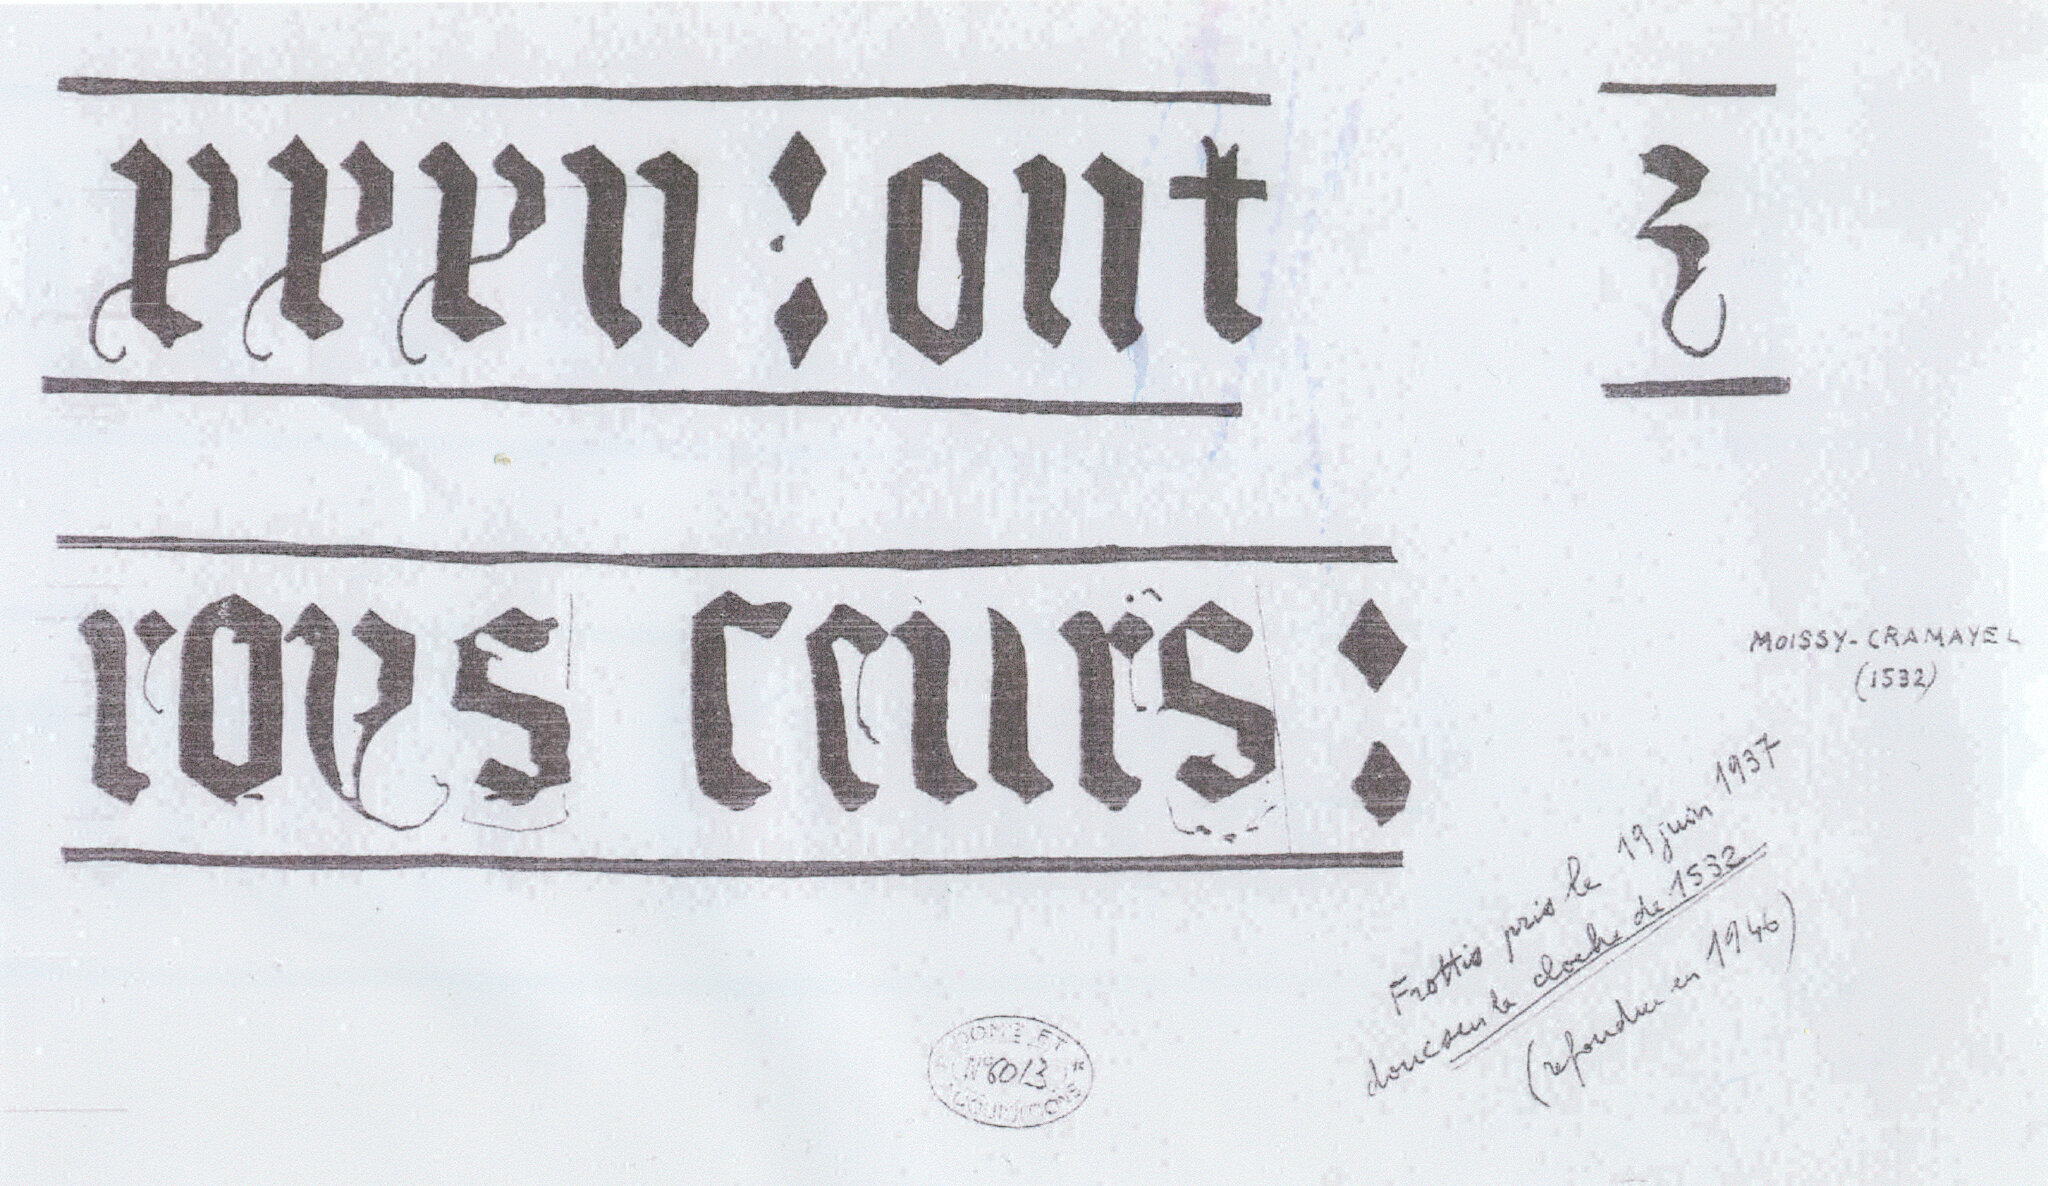 xxxii : ont
ꝫ
roys ceurs :
MOISSY-CRAMAYEL
(1532)
Frottis pris le 19 juin 1937
donc sur la cloche de 1532
(refondue en 1946)
N° 6013